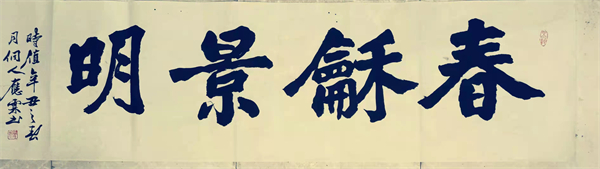 春龢景明
時值辛丑之秋
月何人應霖书